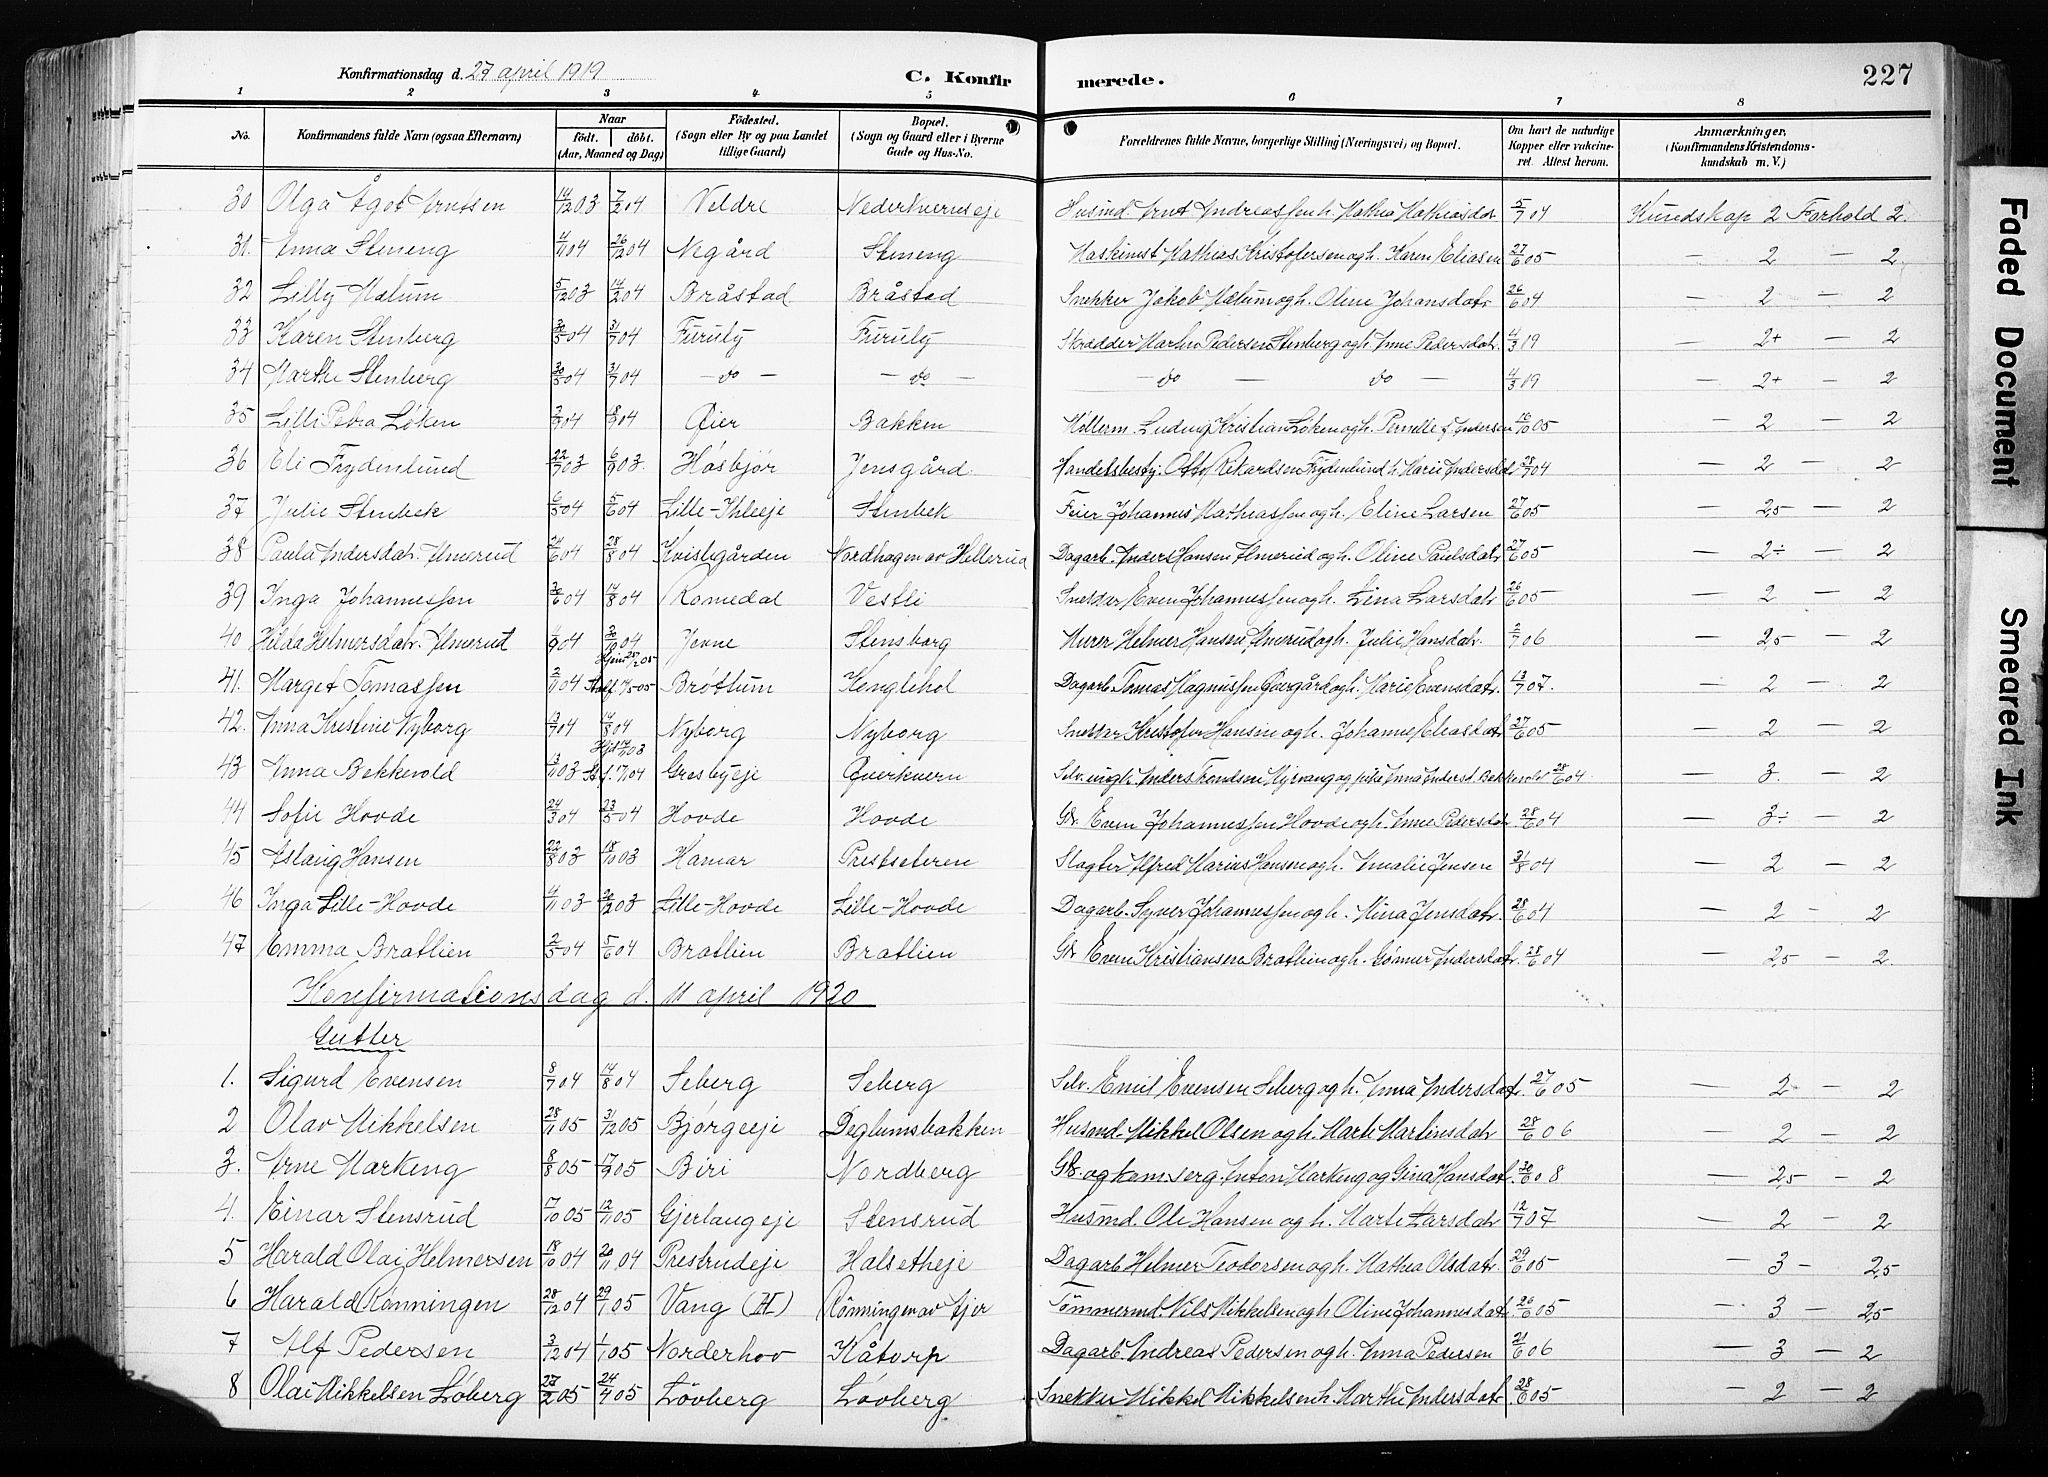 Konfirmationsdag d. 27 april 1919 C. Konfirmerede. 227
1 2 3 4 5 6 7 8
No. Konfirmandens fulde Navn (ogsaa Efternavn) Naar født. døbt. (Aar, Maaned og Dag) Fødested. (Sogn eller By og paa Landet tillige Gaard) Bopæl. (Sogn og Gaard eller i Byerne Gade og Hus-No. Forældrenes fulde Navne, borgerlige Stilling (Næringsvei) og Bopæl. Om havt de naturlige Kopper eller vakcineret. Attest herom. Anmærkninger. (Konfirmandens Kristendomskundskab m. V.)
30 Olga Ågot Arntsen 14/12 03 7/2 04 Veldre Nederkvernseje Husmd. Arnt Andreassen h. Mathea Mathiasdat 5/7 04 Kundskap 2 Forhold 2.
31. Anna Steneng 4/11 04 26/12 04 Negård Steneng Maskinist Mathias Kristofersen og h. Karen Eliasen 27/6 05 — 2 — 2
32 Lilly Mælum 5/12 03 14/2 04 Bråstad Bråstad Snekker Jakob Mælum og h. Oline Johansdatr 26/6 04 — 2 — 2
33 Karen Stenberg 30/5 04 31/7 04 Furuly Furuly Skrædder Martin Pedersen Stenberg og h. Anne Pedersdatr. 4/3 19 — 2+ — 2
34 Marthe Stenberg 30/5 04 31/7 04 — do — — do — — do — do — 4/3 19 — 2+ — 2
35 Lilli Petra Løken 04 18/9 04 Øier Bakken Møllerm. Ludvig Kristian Løken og h. Pernille Andersen 16/10 05 — 2 — 2
36 Eli Frydenlund 22/7 03 6/9 03. Høsbjør Jensgård Handelsbesty. Otto Rikardsen Frydenlund h. Marie Andersdat 28/7 04 — 2 — 2
37 Julie Stenbek 6/5 04 5/6 04 Lille-Ihleeje Stenbek Feier Johannes Mathiassen og h. Eline Larsen 27/6 05 — 2,5 — 2
38 Paula Andersdatr. Amerud 24/6 04 28/8 04 Kvistgården Nordhagen av Hellerud Dagarb. Anders Hansen Amerud og h. Oline Paulsdatr 27/6 05 — 2÷ — 2
39 Inga Johannessen 30/6 04 14/8 04 Romedal Vestli Snekker Even Johannessen og h. Lina Larsdatr 26/6 05 — 2 — 2
40 Hilda Helmersdatr. Amerud 4/9 04 30/10 04 Jevne Stensborg Murer Helmer Hansen Amerud og h. Julie Hansdatr. 2/7 06 — 2,5 — 2
41. Marget Tomassen 2/11 04 Hjem 05 Stadf. 05 Brøttum Kenglehol Dagarb. Tomas Magnussen Øvergård og h. Marie Evensdatr. 13/7 07. — 2 — 2
42. Anna Kristine Nyborg 13/7 04 14/8 04 Nyborg Nyborg Snekker Kristofer Hansen og h. Johanne Eliasdatr 27/6 05 — 2 — 2
43 Anna Bekkevold 13/11 03 Hjd. 03 St.f. 04 Gresbyeje Øverkvern Selv. ungk. Anders Trondsen Myrvang og pike Anna Andersd. Bekkevold 28/6 04 — 3. — 2
44 Sofie Hovde 24/3 04 23/5 04 Hovde Hovde Gbr. Even Johannessen Hovde og h. Anne Pedersdatr 28/6 04 — 3÷ — 2
45 Aslaug Hansen 22/8 03 18/10 03 Hamar Prestseteren Slagter Alfred Marius Hansen og h. Amalie Jensen 31/8 04 — 2 — 2
46 Inga Lille-Hovde 4/11 03 26/12 03 Lille-Hovde Lille-Hovde Dagarb. Syver Johannessen og h. Mina Jensdatr. 28/6 04 — 2 — 2
47 Emma Bratlien 2/5 04 5/6 04 Bratlien Bratlien Gbr. Even Kristiansen Bratlien og h. Gønner Andersdatr. 28/6 04 — 2,5 — 2.
Konfirmationsdag d. 11 april 1920
Gutter
1. Sigurd Evensen 8/7 04 14/8 04 Seberg Seberg Selv. Emil Evensen Seberg og h. Anna Andersdatr. 27/6 05 — 2 — 2
2 Olav Mikkelsen 28/11 05 31/12 05 Bjørgeeje Deglumsbakken Husmd. Mikkel Olsen og h. Marte Martinsdatr 28/6 06 — 2 — 2
3. Arne Markeng 8/8 05 17/9 05 Biri Nordberg Gbr. og kom.serg. Anton Markeng og Gina Hansdatr. 30/6 08 — 2,5 — 2
4. Einar Stensrud 17/10 05 12/11 05 Gjerlaugeje Stensrud Husmd. Ole Hansen og h. Marte Larsdatr 12/9 07 — 2 — 2
5 Harald Olai Helmersen 18/10 04 20/11 04 Prestrudeje Halsetheje Dagarb. Helmer Teodorsen og h. Mathea Olsdatr. 29/6 05 — 3 — 2,5
6 Harald Rønningen 28/12 04 29/1 05 Vang (H) Rønningen av Ajer Tømmermd Nils Mikkelsen og h. Oline Johannesdatr. 26/6 05 — 3 — 2,5
7 Alf Pedersen 3/12 04 1/1 05 Norderhov Kåtorp Dagarb. Andreas Pedersen og h. Anna Pedersen 21/6 06 — 3 — 2
8 Olai Mikkelsen Løberg 27/2 05 24/4 05 Løvberg Løvberg Snekker Mikkel Mikkelsen h. Marthe Andersdatr. 28/6 05 — 2 — 2
Faded Document
Smeared Ink